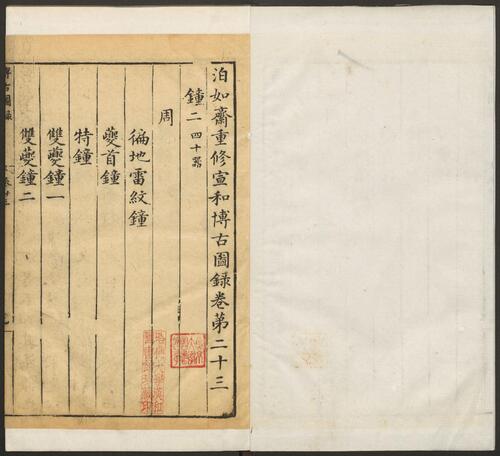 泊如齋重修宣和博古圖錄卷第二十三
鐘二 四十器
周
徧地雷紋鐘
夔首鐘
特鐘
雙夔鐘一
雙夔鐘二